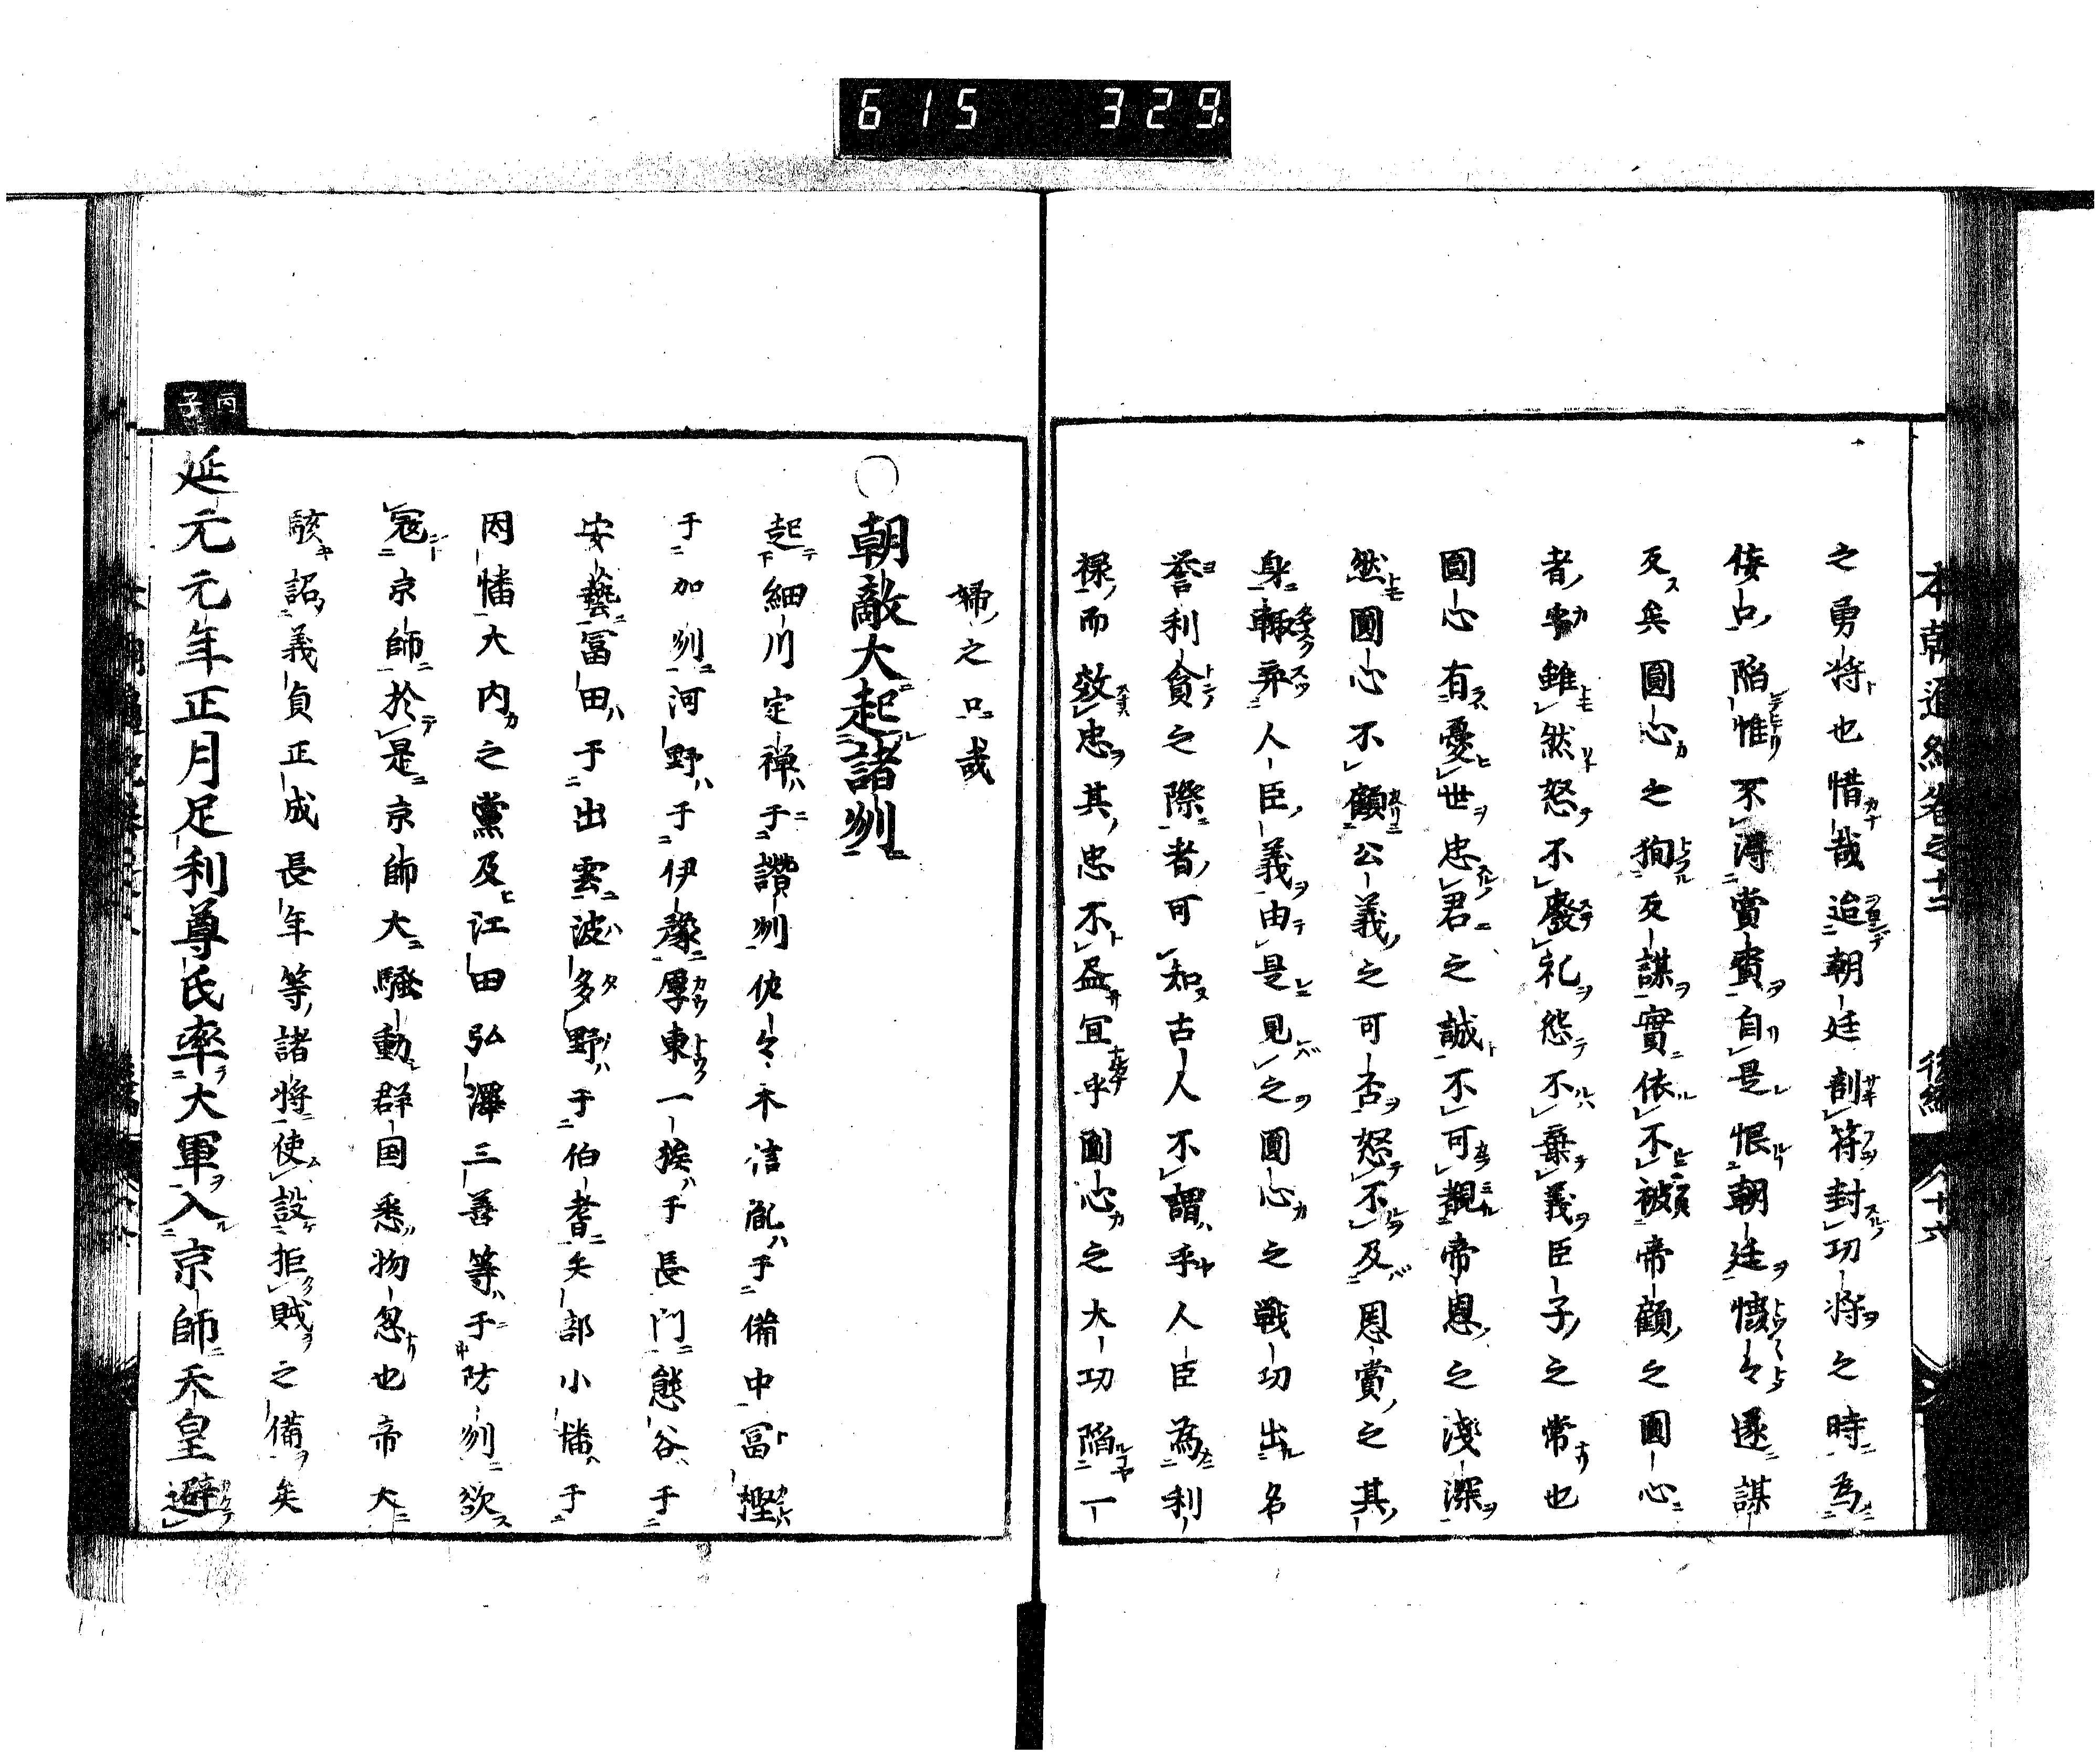 615 329
本朝通紀卷之十二 後編 八十六
之勇將也惜哉迨朝廷剖符封功將之時為
佞口陷惟不得賞賚自是恨朝廷懷々遂謀
反矣圓心之狥反謀實依不被帝顧之圓心
者事雖然怒不廢礼怨不棄義臣子之常也
圓心有憂世忠君之誠不可覩帝恩之淺深
然圓心不顧公義之可否怒不及恩賞之其
身輙棄人臣義由是見之圓心之戰功出名
誉利貪之際者可知古人不謂乎人臣為利
祿而效忠其忠不益宜乎圓心之大功陷一
婦之口哉
○朝敵大起諸州
起細川定禅于讃州佐々木信胤于備中冨樫
于加州河野于伊豫厚東一族于長門熊谷于
安藝冨田于出雲波多野于伯耆矢部小幡于
因幡大内之黨及江田弘澤三善等于防州欲
寇京師於是京師大騷動群国悉物忽也帝大
駭詔義貞正成長年等諸將使設拒賊之備矣
丙子
延元元年正月足利尊氏率大軍入京師天皇避